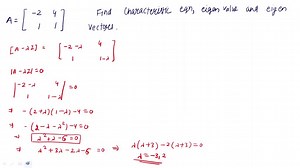 A = [ -2 4 Find characteristic eqn, eigen value and eigen
1 1 ] vectors.
[A-λI] = [ -2-λ 4
1 1-λ ]
|A-λI| = 0
| -2-λ 4
1 1-λ | = 0
⇒ -(2+λ)(1-λ)-4=0
⇒ -(2-λ-λ²)-4=0
⇒ λ²+λ-6=0
⇒ λ²+3λ-2λ-6=0 ⇒ λ(λ+3)-2(λ+3)=0
λ=-3,2